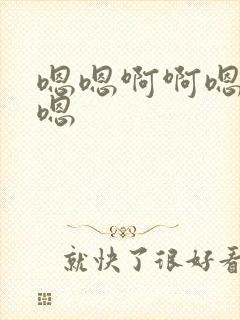 嗯嗯啊啊嗯
嗯
就快了很好看